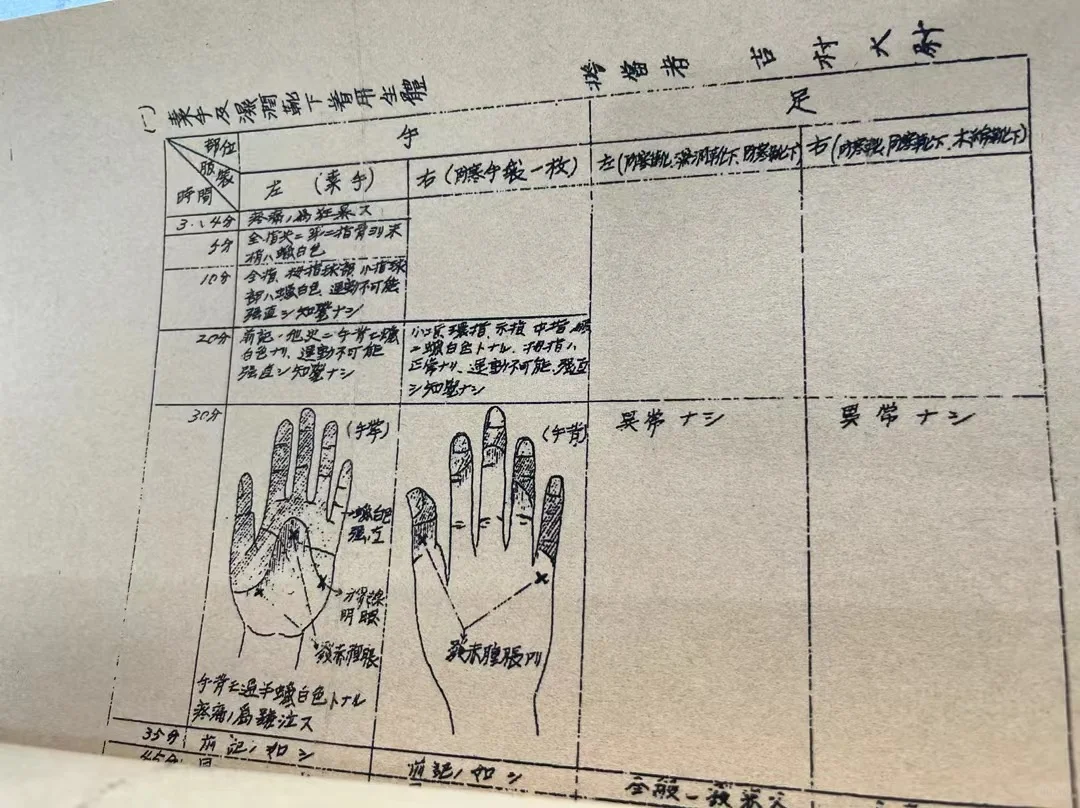 擔當者 吉村大尉
(一) 素手及濕潤靴下着用生體
部位
服装
時間
手
足
左 (素手)
右 (防寒手袋一枚)
左 (防寒靴、濕潤靴下、防寒靴下)
右 (防寒靴、防寒靴下、木綿靴下)
3、4分
疼痛ノ為狂暴ス
5分
全指尖ニ第二指骨ヨリ末
梢ハ蠟白色
10分
全指、拇指球部、小指球
部ハ蠟白色、運動不可能
强直シ知覺ナシ
20分
前記ノ他更ニ手背モ蠟
白色ナリ、運動不可能
强直シ知覺ナシ
蠟白色トナル、拇指ハ
正常ナリ、運動不可能、强直
シ知覺ナシ
30分
(手掌)
蠟白色
强直
分界線
明瞭
發赤腫脹
手背モ過半蠟白色トナル
疼痛ノ為
(手背)
發赤腫脹アリ
異常ナシ
異常ナシ
35分
前記ノ如シ
前記ノ如シ
45分
同